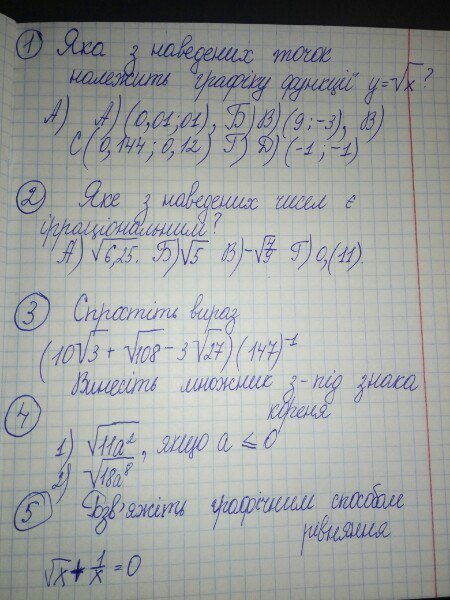 ① Яка з наведених точок
належить графіку функції y=√x?
А) А)(0,01;01), Б) В)(9;-3), В)
С(0,144;0,12) Г) Д)(-1;-1)
② Яке з наведених чисел є
ірраціональним?
А)√6,25. Б)√5 В)-√7/9 Г)0,(11).
③ Спростіть вираз
(10√3 + √108 - 3√27)(147)⁻¹
Винесіть множник з-під знака
кореня
④
1) √11a², якщо a ≤ 0
2) √18a⁸
⑤ Розв'яжіть графічним способом
рівняння
√x + 1/x = 0